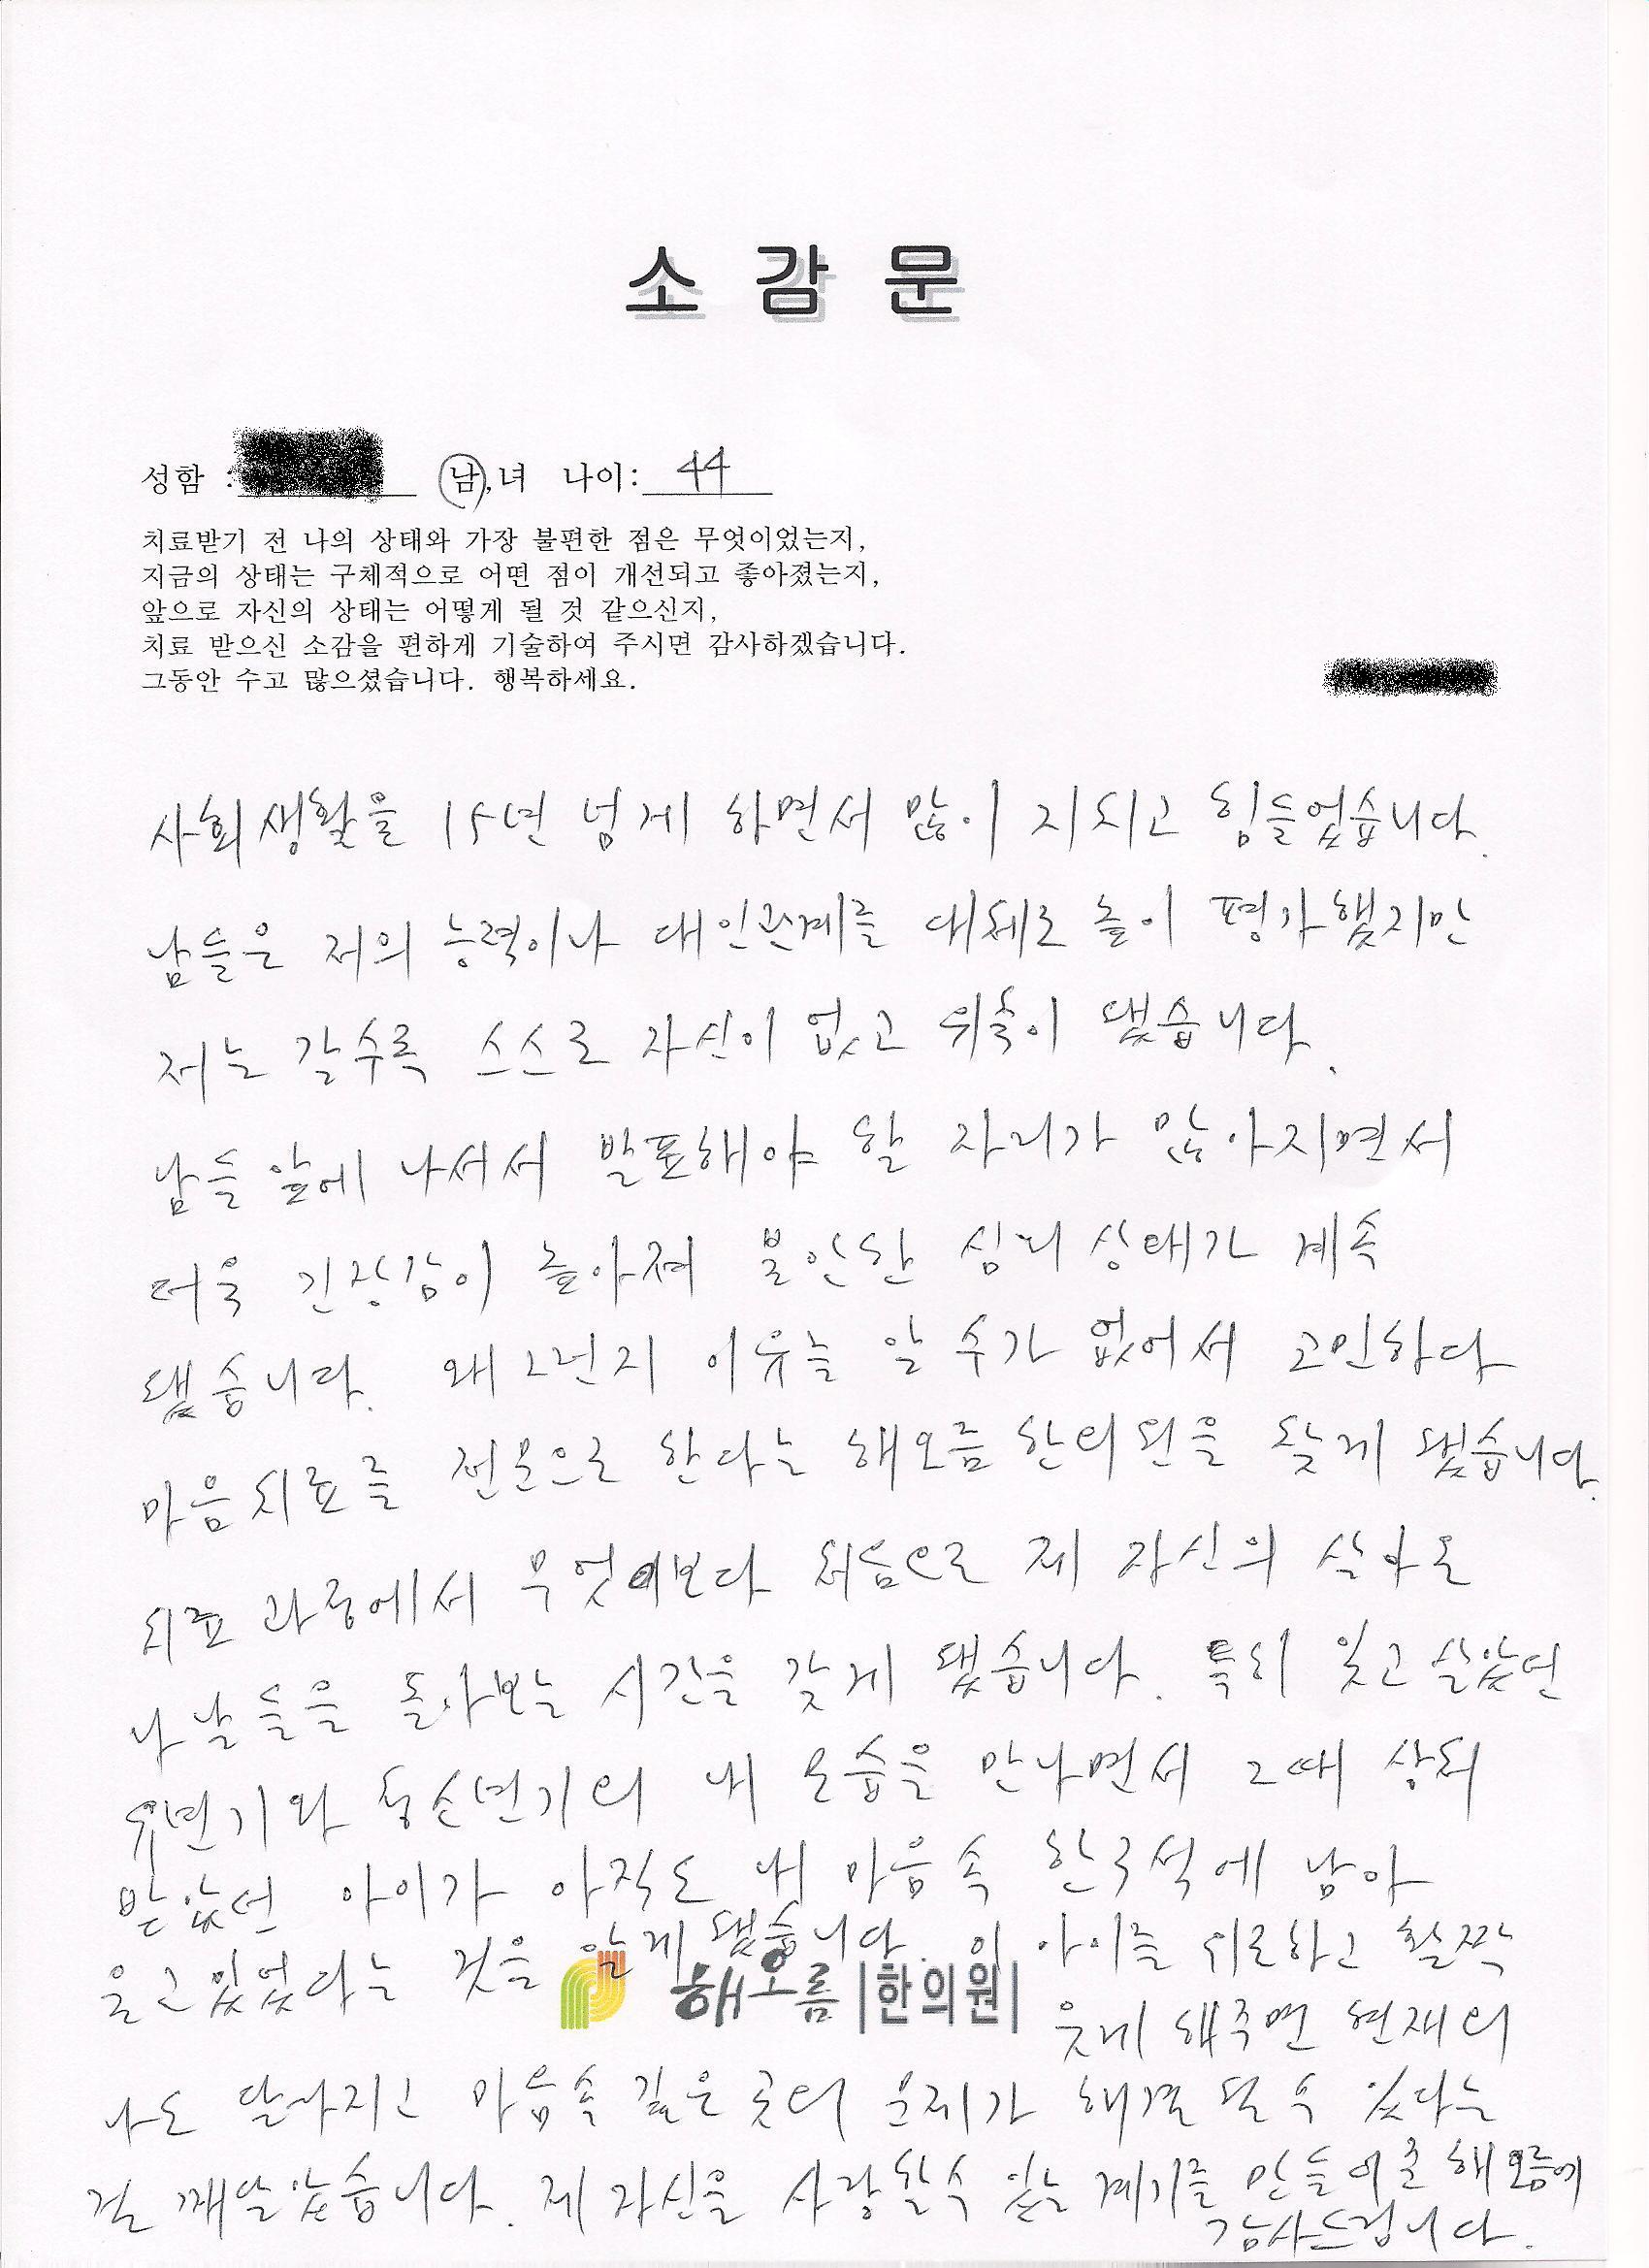 소 감 문
성함 : 남,녀 나이: 44
치료받기 전 나의 상태와 가장 불편한 점은 무엇이었는지,
지금의 상태는 구체적으로 어떤 점이 개선되고 좋아졌는지,
앞으로 자신의 상태는 어떻게 될 것 같으신지,
치료 받으신 소감을 편하게 기술하여 주시면 감사하겠습니다.
그동안 수고 많으셨습니다. 행복하세요.
사회생활을 15년 넘게 하면서 많이 지치고 힘들었습니다.
남들은 저의 능력이나 대인관계를 대체로 높이 평가했지만
저는 갈수록 스스로 자신이 없고 위축이 됐습니다.
남들 앞에 나서서 발표해야 할 자리가 많아지면서
더욱 긴장감이 높아져 불안한 심리 상태가 계속
됐습니다. 왜 그런지 이유를 알 수가 없어서 고민하다
마음치료를 전문으로 한다는 해오름한의원을 찾게 됐습니다.
치료 과정에서 무엇보다 처음으로 제 자신의 살아온
나날들을 돌아보는 시간을 갖게 됐습니다. 특히 잊고 살았던
유년기와 청소년기의 내 모습을 만나면서 그때 상처
받았던 아이가 아직도 내 마음속 한구석에 남아
울고 있었다는 것을 알게 됐습니다. 이 아이를 위로하고 활짝
해오름 한의원
웃게 해주면 현재의
나도 달라지고 마음속 깊은 곳의 문제가 해결될 수 있다는
걸 깨달았습니다. 제 자신을 사랑할 수 있는 계기를 만들어준 해오름에
감사드립니다.